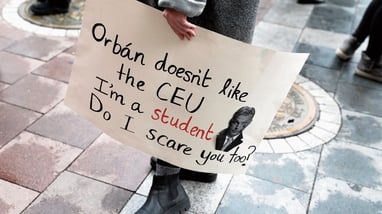 Orbán doesn't like
the CEU
I'm a student
Do I scare you too?